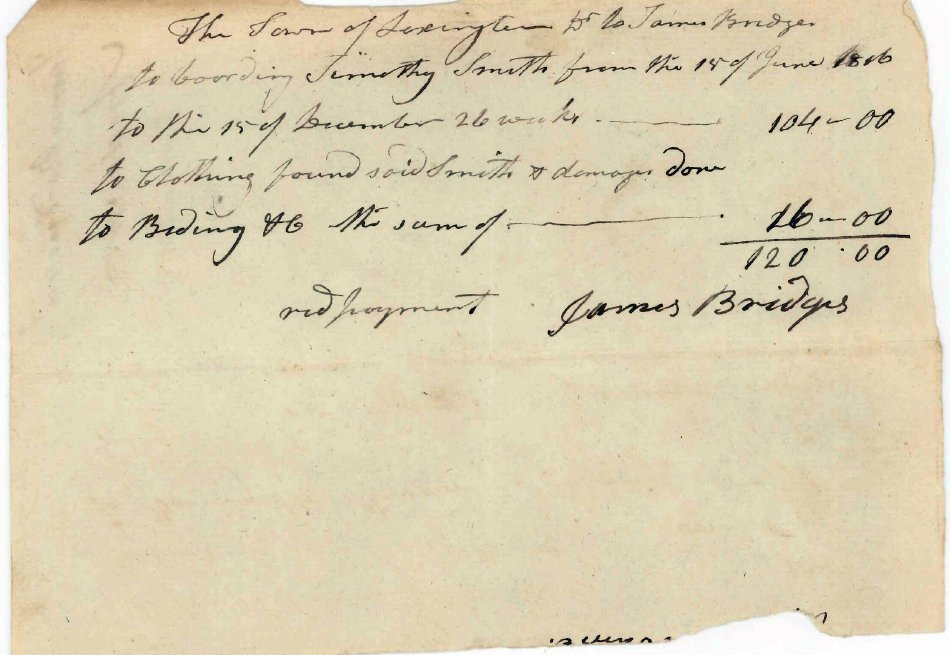 The Town of Lexington Dr to James Bridges
to boording Timothy Smith from the 15 of June 1816
to the 15 of December 26 weeks 104-00
to Clothing found said Smith & damages done
to Beding &c the sum of 16-00
120.00
recd payment James Bridges